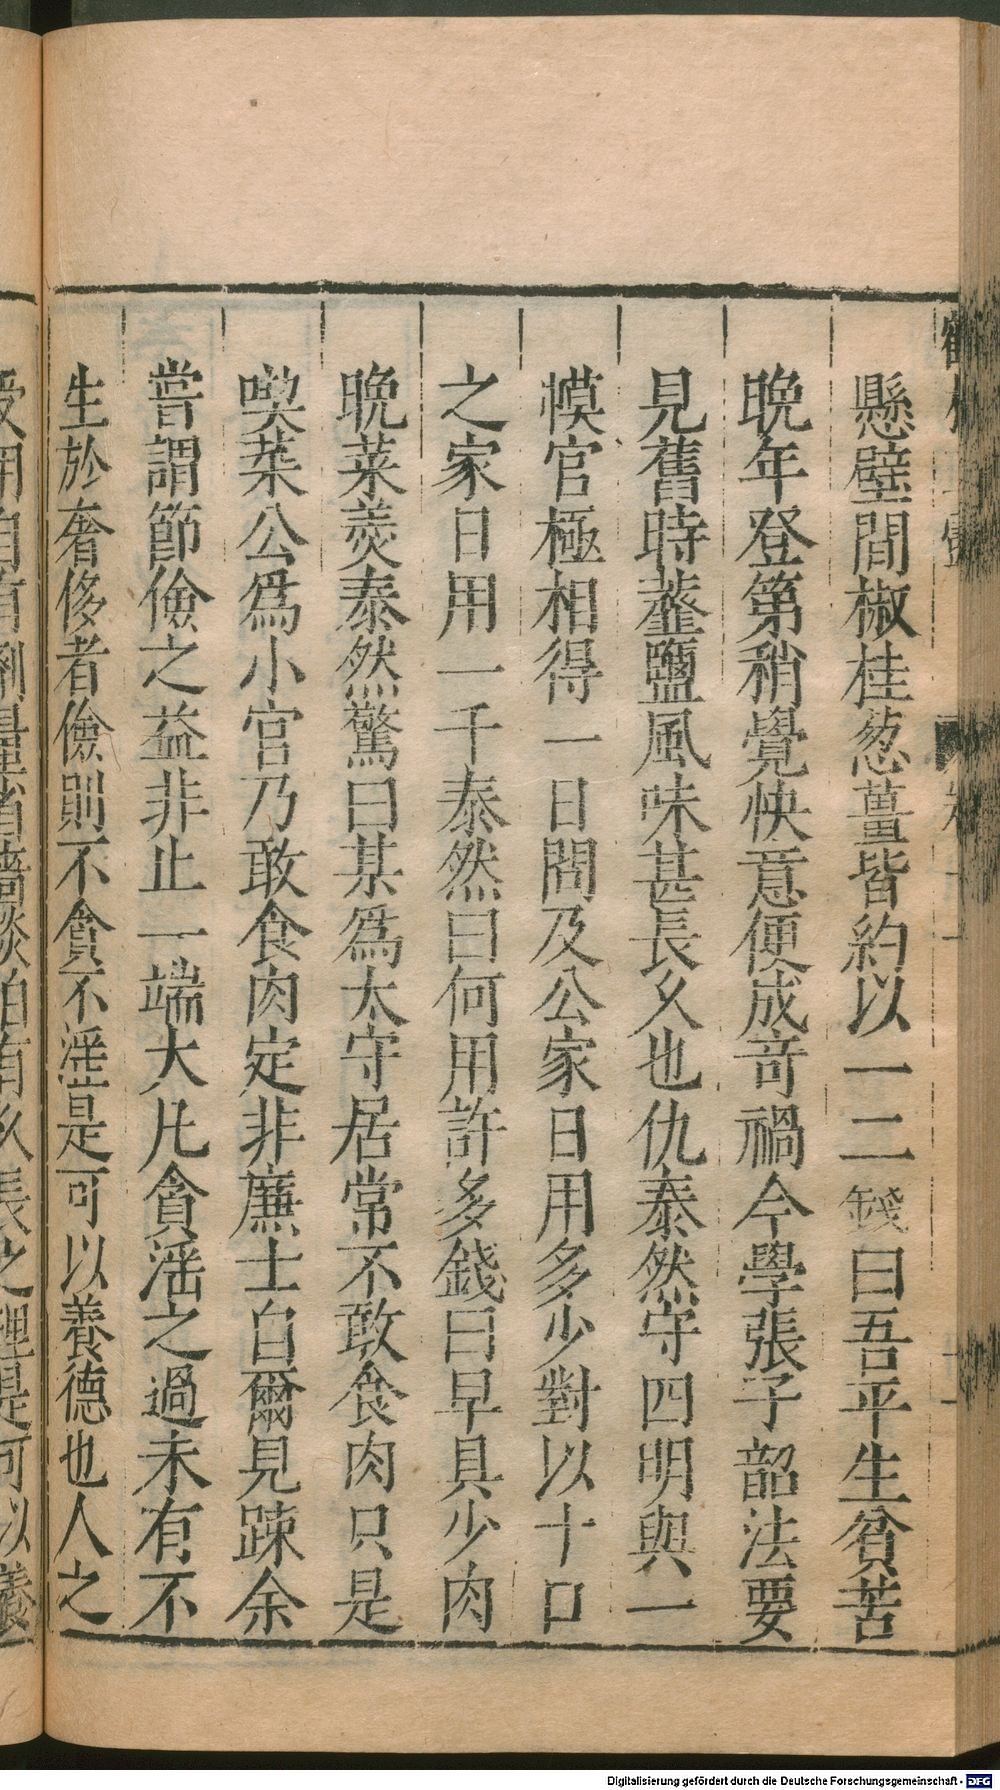 懸壁間椒桂葱薑皆約以一二錢曰吾平生貧苦
晚年登第稍覺快意便成奇禍今學張子韶法要
見舊時虀鹽風味甚長久也仇泰然守四明與一
幙官極相得一日問及公家日用多少對以十口
之家日用一千泰然曰何用許多錢曰早具少肉
晚菜羹泰然驚曰某爲太守居常不敢食肉只是
喫菜公爲小官乃敢食肉定非廉士自爾見踈余
嘗謂節儉之益非止一端大凡貪淫之過未有不
生於奢侈者儉則不貪不淫是可以養德也人之
Digitalisierung gefördert durch die Deutsche Forschungsgemeinschaft - DFG